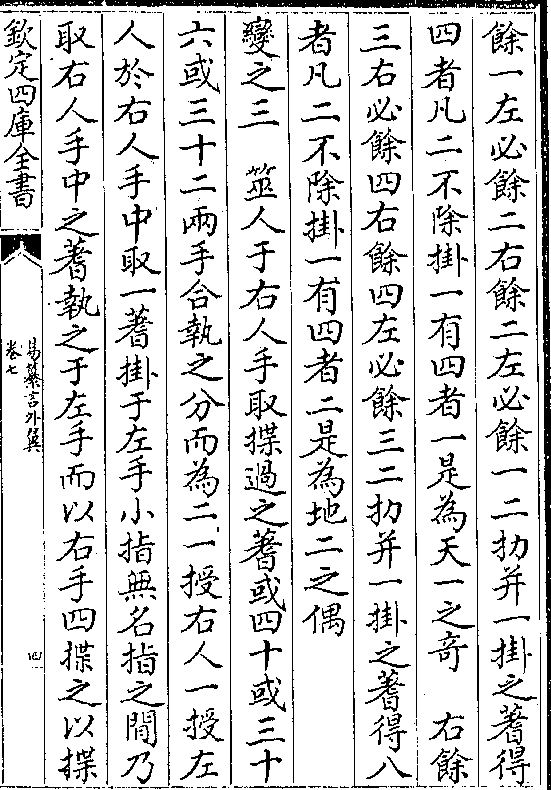 餘一左必餘二右餘二左必餘一二扐并一掛之蓍得
四者凡二不除掛一有四者一是為天一之奇　右餘
三右必餘四右餘四左必餘三二扐并一掛之蓍得八
者凡二不除掛一有四者二是為地二之偶
變之三　筮人于右人手取揲過之蓍或四十或三十
六或三十二兩手合執之分而為二一授右人一授左
人於右人手中取一蓍掛于左手小指無名指之間乃
取右人手中之蓍執之于左手而以右手四揲之以揲
欽定四庫全書
易纂言外翼
卷七
四